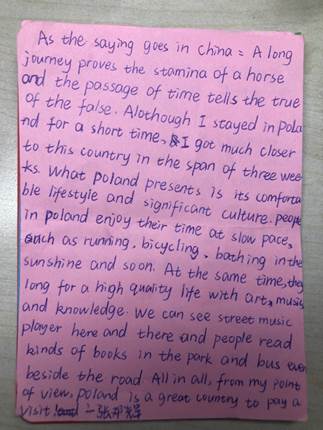 As the saying goes in China: A long
journey proves the stamina of a horse
and the passage of time tells the true
of the false. Alothough I stayed in pola
nd for a short time, I got much closer
to this country in the span of three wee
ks. What poland presents is its comforta
ble lifestyle and significant culture. people
in poland enjoy their time at slow pace,
such as running, bicycling, bathing in the
sunshine and soon. At the same time, they
long for a high quality life with art, music
and knowledge. We can see street music
player here and there and people read
kinds of books in the park and bus even
beside the road. All in all, from my point
of view, poland is a great country to pay a
visit! —张